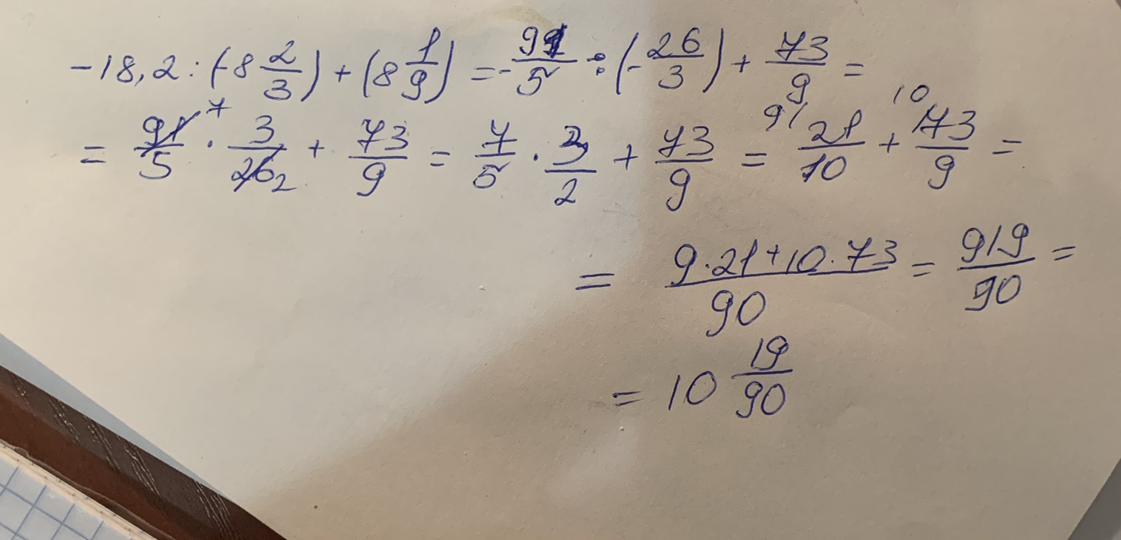 -18,2 : (-8 2/3) + (8 1/9) = -91/5 : (-26/3) + 73/9 =
= 91/5 7 · 3/26 2 + 73/9 = 7/5 · 3/2 + 73/9 = 9/ 21/10 + 10/ 73/9 =
= 9·21+10·73/90 = 919/90 =
= 10 19/90